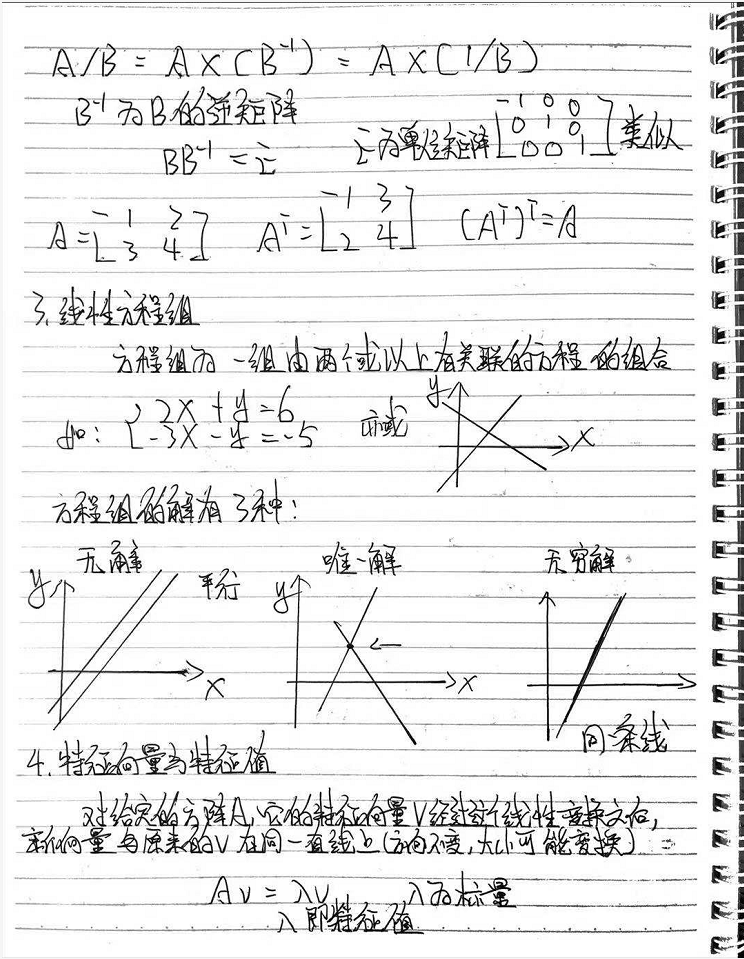 A/B = A×(B⁻¹) = A×(1/B)
B⁻¹为B的逆矩阵
BB⁻¹ = I I为单位矩阵 [1 0 0; 0 1 0; 0 0 1] 类似
A = [1 2; 3 4] Aᵀ = [1 3; 2 4] (Aᵀ)ᵀ = A
3. 线性方程组
方程组为一组由两个或以上有关联的方程的组合
如: { 2x + y = 6 亦或 y x
-3x - y = -5
方程组的解有3种:
无解 唯一解 无穷解
y 平行 y
x x
同一条线
4. 特征向量与特征值
对给定的方阵A, 它的特征向量V经过这个线性变换之后,
新向量与原来的V在同一直线上(方向不变, 大小可能变换)
Av = λv λ为标量
λ即特征值